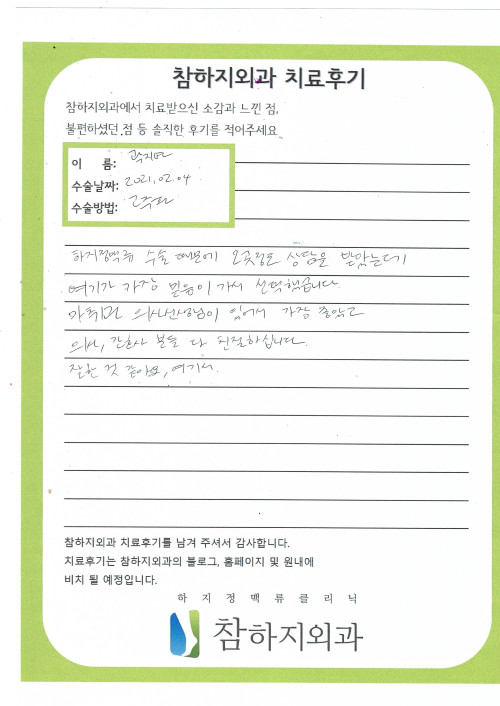 참하지외과 치료후기
참하지외과에서 치료받으신 소감과 느낀 점,
불편하셨던 점 등 솔직한 후기를 적어주세요
이 름: 곽지연
수술날짜: 2021.02.04
수술방법: 고주파
하지정맥류 수술 때문에 2곳정도 상담을 받았는데
여기가 가장 믿음이 가서 선택했습니다
마취과 의사선생님이 있어서 가장 좋았고
의사, 간호사 분들 다 친절하십니다.
잘한 것 같아요, 여기서.
참하지외과 치료후기를 남겨 주셔서 감사합니다.
치료후기는 참하지외과의 블로그, 홈페이지 및 원내에
비치 될 예정입니다.
하지정맥류클리닉
참하지외과